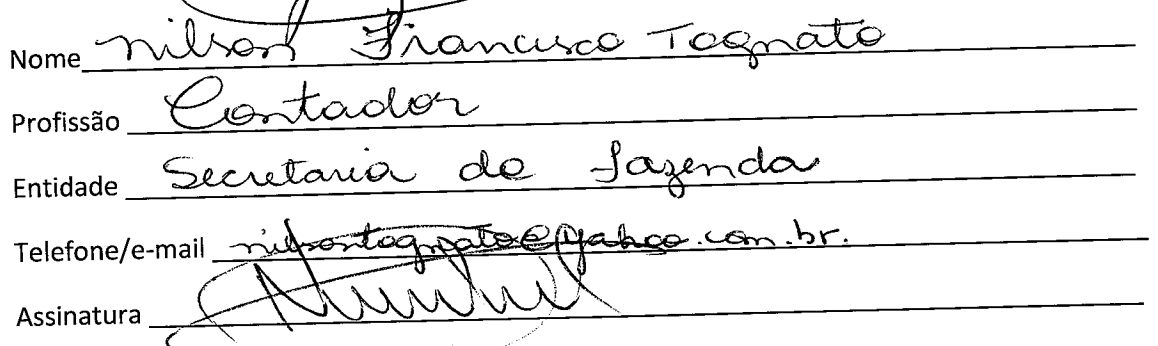 Nome Nilson Francisco Tognato
Profissão Contador
Entidade Secretaria de Fazenda
Telefone/e-mail nilsontognato@yahoo.com.br.
Assinatura